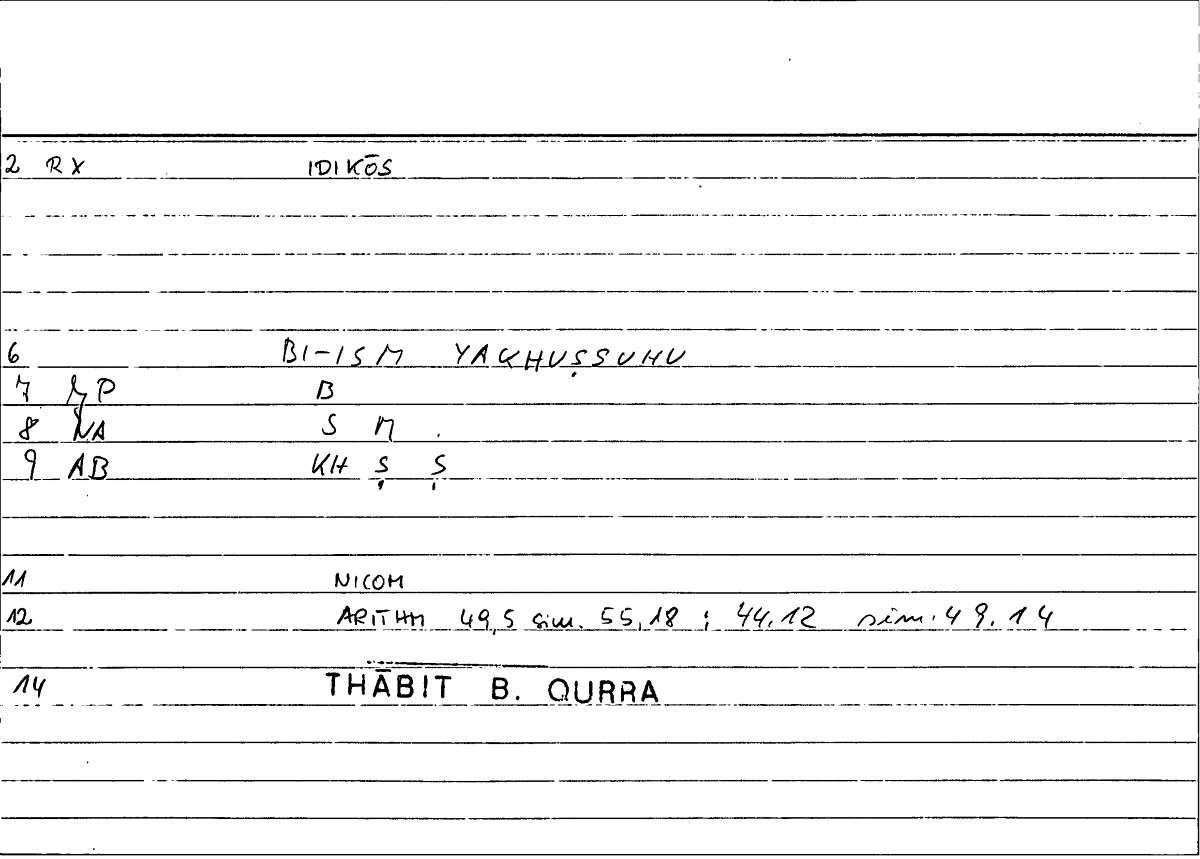 2 RX IDIKŌS
6 BI-ISM YAKHUṢṢUHU
7 MP B
8 NA S M .
9 AB KH Ṣ Ṣ
11 NICOM
12 ARITHM 49,5 sim. 55,18 ; 44.12 sim. 49.14
14 THĀBIT B. QURRA